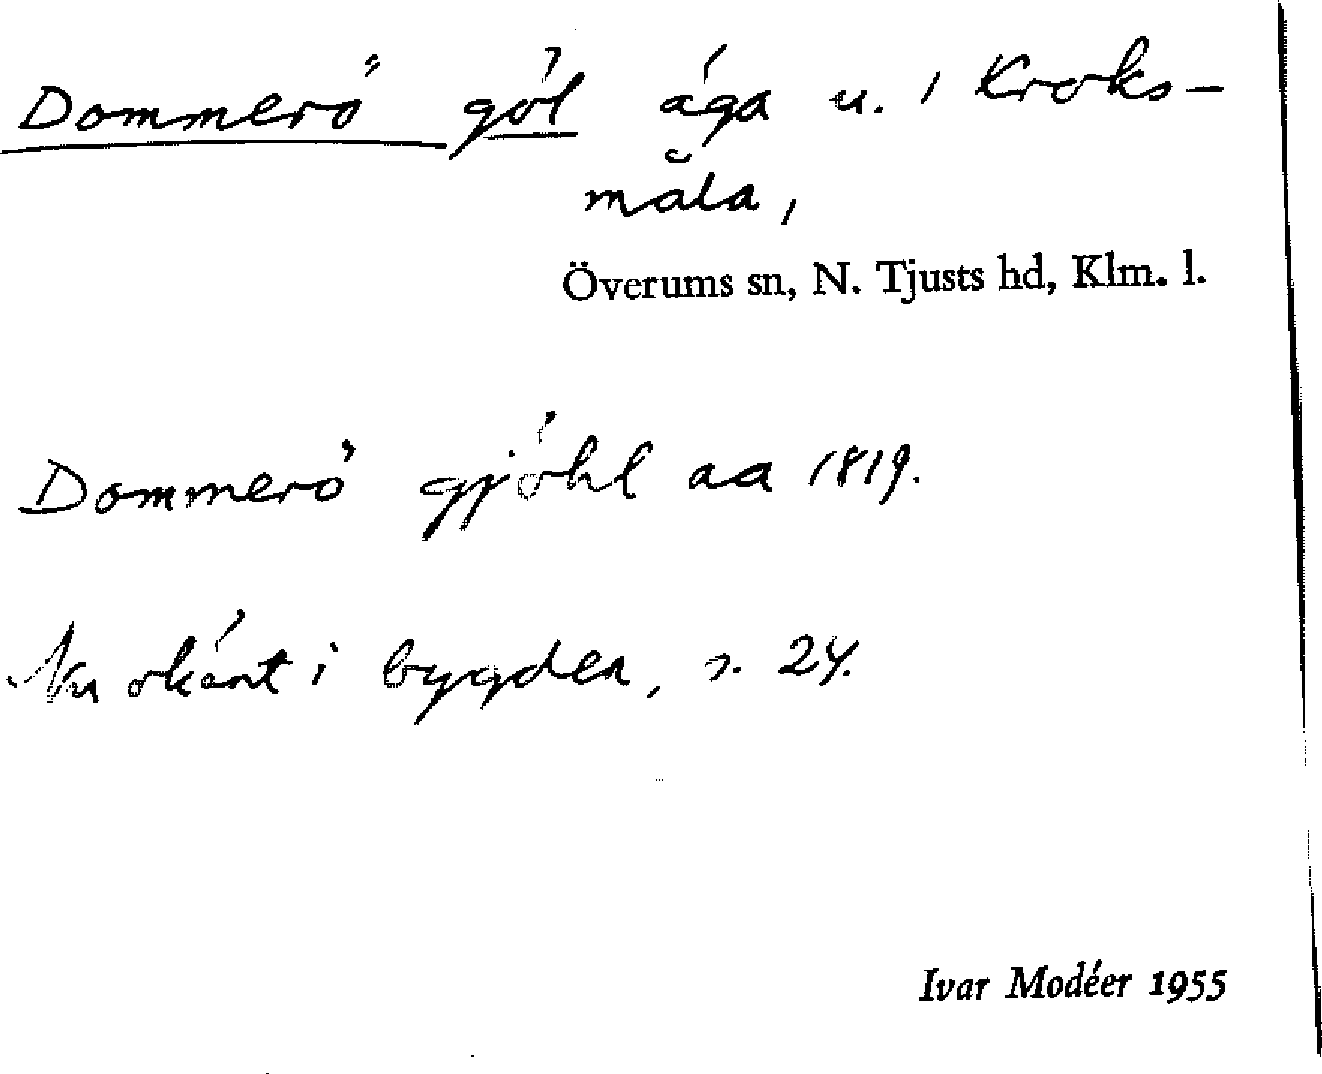 Dommerö göl äga u. i Kroks-
måla,
Överums sn, N. Tjusts hd, Klm. l.
Dommerö gjöhl aa 1819.
Nu okänt i bygden, s. 24.
Ivar Modéer 1955